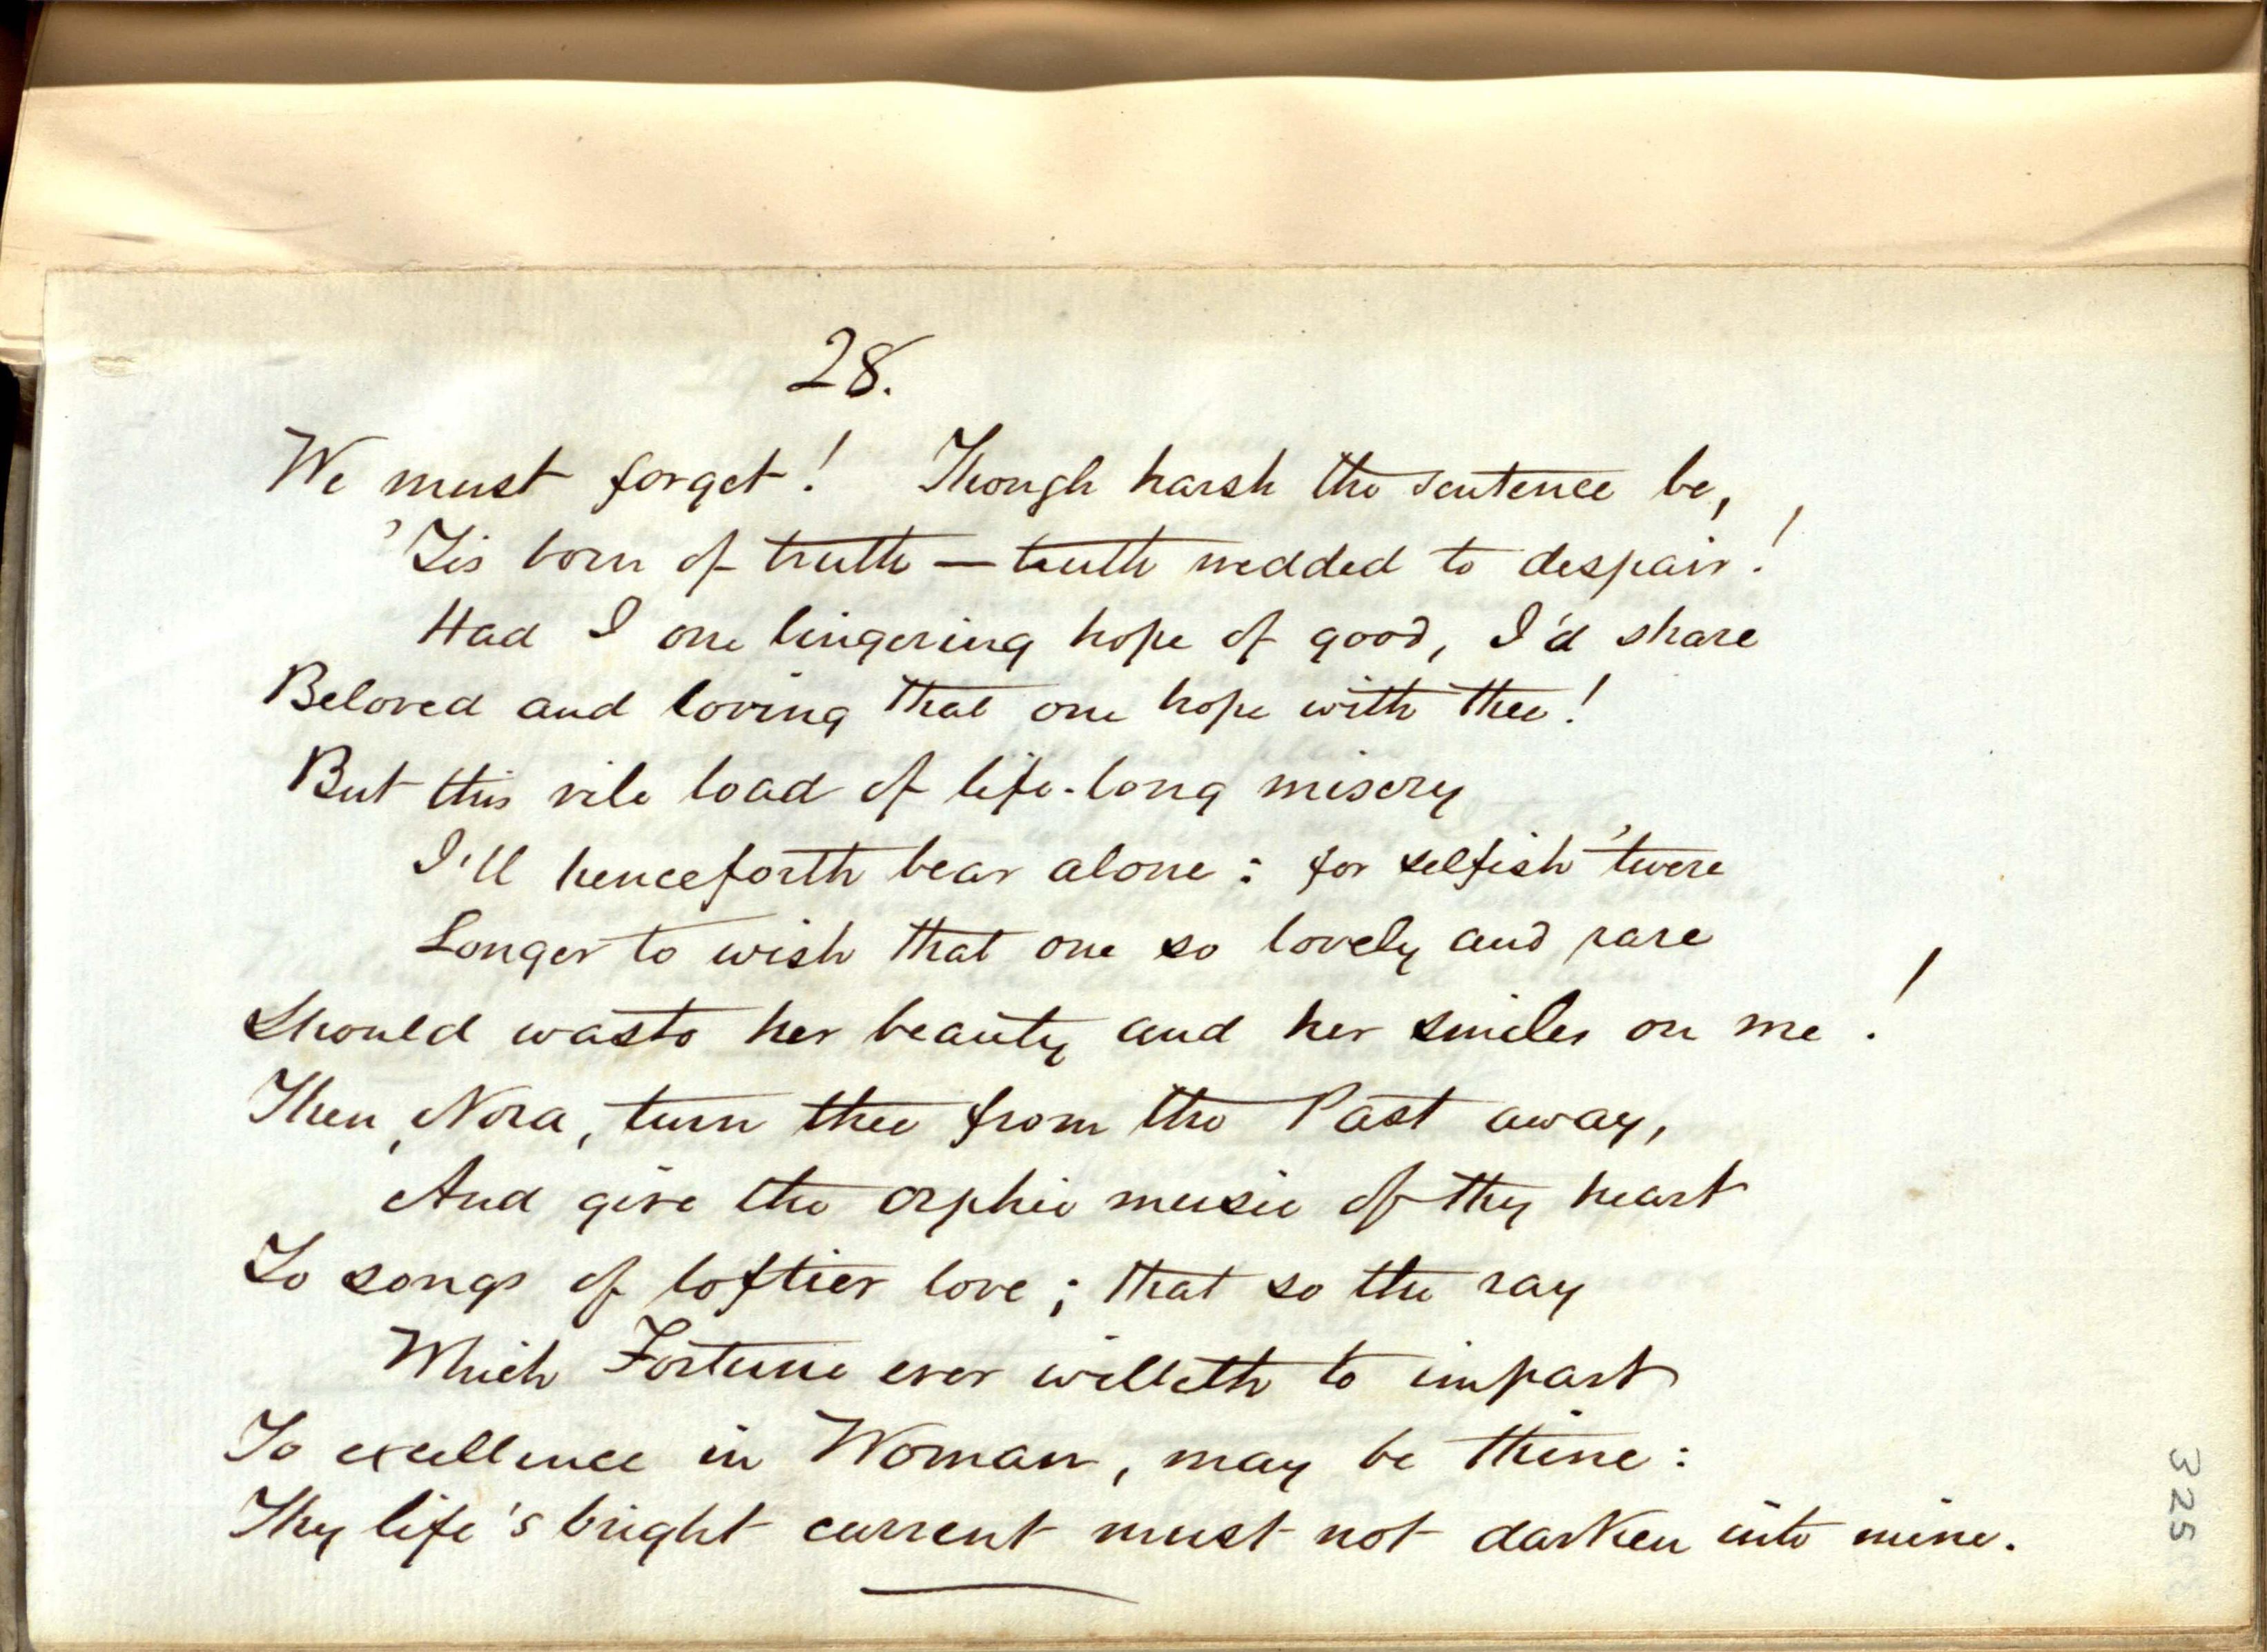 28.
We must forget! Though harsh the sentence be,
'Tis born of truth — truth wedded to despair!
Had I one lingering hope of good, I'd share
Beloved and loving that one hope with thee!
But this vile load of life-long misery
I'll henceforth bear alone: for selfish 'twere
Longer to wish that one so lovely and rare
Should waste her beauty and her smiles on me!
Then, Nora, turn thee from the Past away,
And give the orphic music of thy heart
To songs of loftier love; that so the ray
Which Fortune ever willeth to impart
To excellence in Woman, may be thine:
Thy life's bright current must not darken into mine.
325